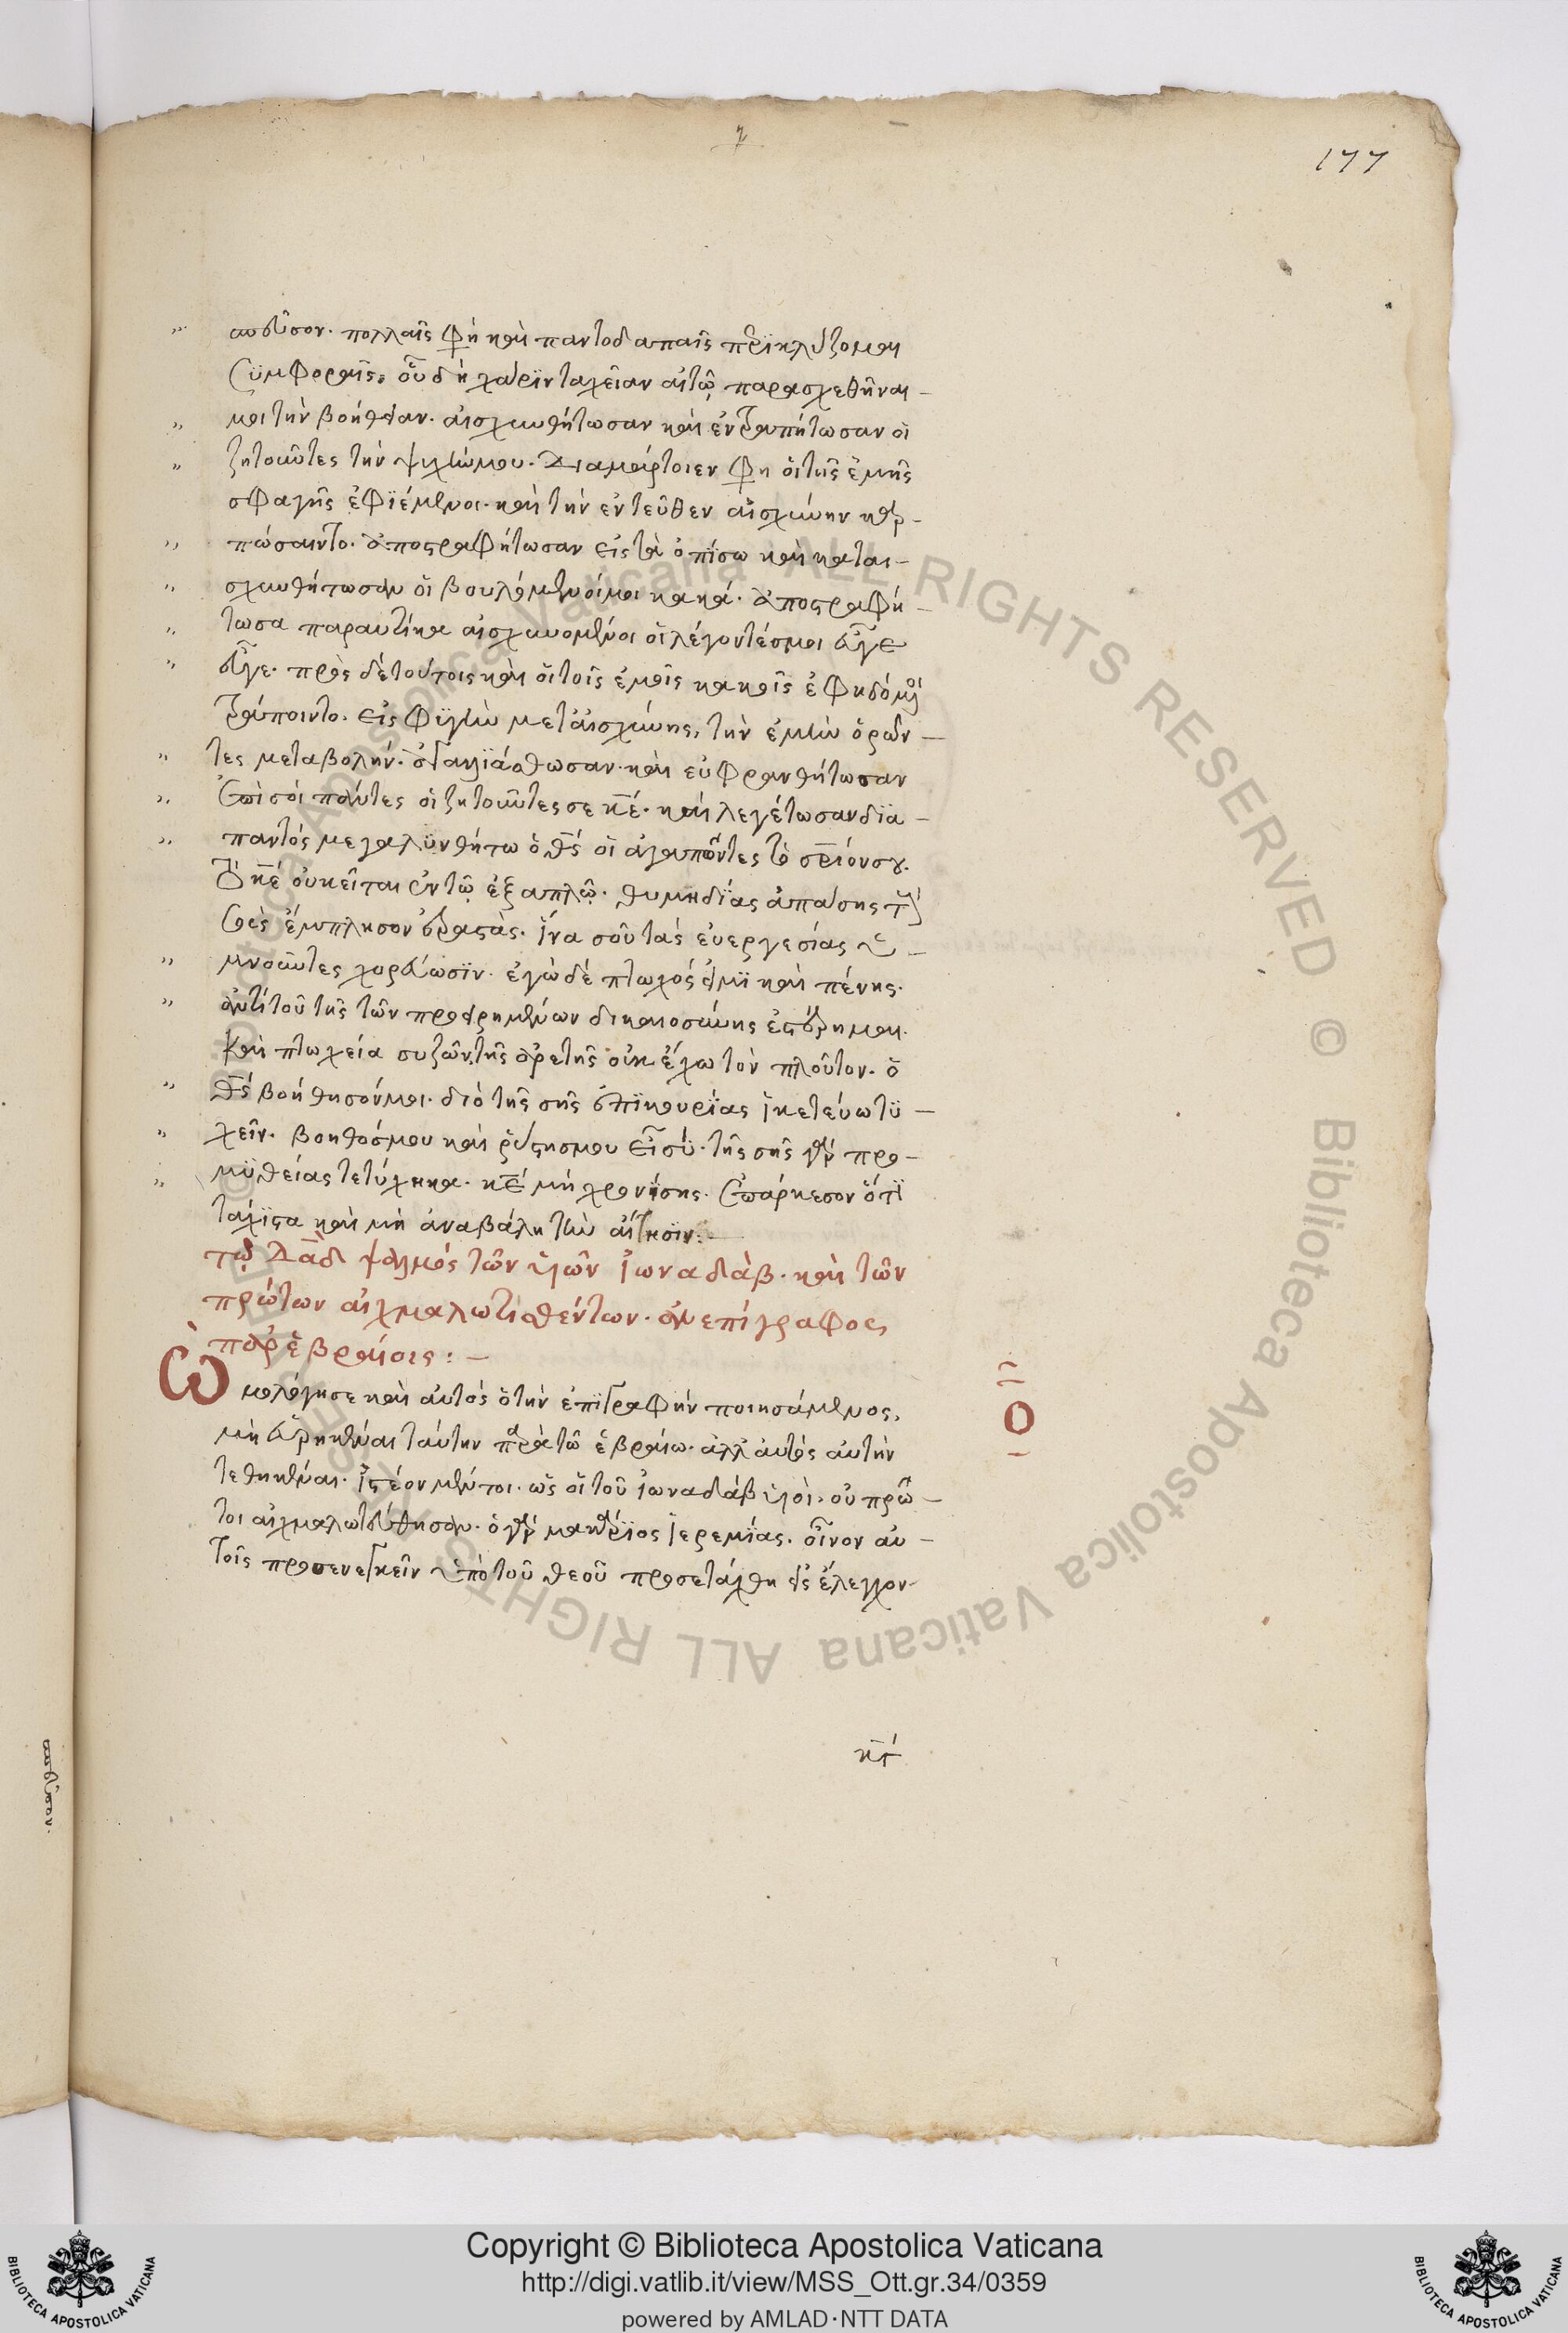 177
σπεῦσον. πολλαῖς φη καὶ παντοδαπαῖς περϊκλύζομαι
συμφοραῖς. οὗ δὴ χάριν ταχεῖαν αἰτῶ παρασχεθῆναι –
μοι τὴν βοήθειαν. αἰσχυνθήτωσαν καὶ ἐντραπήτωσαν οἱ
ζητοῦντες τὴν ψυχήν μου. διαμάρτοιεν φη οἱ τῆς ἐμῆς
σφαγῆς ἐφϊέμενοι. καὶ τὴν ἐντεῦθεν αἰσχύνην καρ –
πώσαιντο. ἀποστραφήτωσαν εἰς τὰ ὀπίσω καὶ καται –
σχυνθήτωσαν οἱ βουλόμενοί μοι κακά. ἀποστραφή –
τωσα παραυτίκα αἰσχυνομένοι οἱ λέγοντές μοι εὖγε
εὖγε. πρὸς δὲ τούτοις καὶ οἱ τοῖς ἐμοῖς κακοῖς ἐφηδόμενοι
τράποιντο. εἰς φυγὴν μετ' αἰσχύνης, τὴν ἐμὴν ὁρῶν –
τες μεταβολήν. ἀγαλϊάσθωσαν. καὶ εὐφρανθήτωσαν
ἐπὶ σοὶ πάντες οἱ ζητοῦντες σε κε. καὶ λεγέτωσαν δϊα –
παντός μεγαλυνθήτω ὁ θς οἱ ἀγαπῶντες τὸ σριόν σου.
Τὸ κε οὐ κεῖται ἐν τῶ ἑξαπλῶ. θυμηδίας ἁπάσης τοὺς
σοὺς ἔμπλησον ἐραστάς. ἵνα σοῦ τὰς εὐεργεσίας ὑ –
μνοῦντες χορεύωσϊν. ἐγὼ δὲ πτωχός εἰμϊ καὶ πένης.
ἀντὶ τοῦ τῆς τῶν προειρημένων δικαιοσύνης ἐστέρημαι.
καὶ πτωχεία συζῶν, τῆς ἀρετῆς οὐκ ἔχω τὸν πλοῦτον. ὁ
θς βοήθησόν μοι. διὸ τῆς σῆς ἐπϊκουρίας ἱκετεύω τϋ –
χεῖν. βοηθός μου καὶ ῥύστης μου εἶ σύ. τῆς σῆς γὰρ προ –
μϋθείας τετύχηκα. κε μὴ χρονίσης. ἐπάρκεσον ὅτϊ
τάχϊστα καὶ μὴ ἀναβάλη τὴν αἴτησϊν. –
τῶ δαδ ψαλμός τῶν υἱῶν ἰωναδάβ. καὶ τῶν
πρώτων αἰχμαλωτισθέντων. ἀνεπίγραφος
παρ' ἑβραίοις : –
Ὡμολόγησε καὶ αὐτὸς ὁ τὴν ἐπιγραφὴν ποιησάμενος,
Ο
μὴ εὑρηκέναι ταύτην παρὰ τῶ ἑβραίω. ἀλλ' αὐτὸς αὐτὴν
τεθηκέναι. ἰστέον μέντοι. ὡς οἱ τοῦ ἰωναδάβ υἱοὶ. οὐ πρῶ –
τοι αἰχμαλωτεύθησαν. ὁ γὰρ μακάριος ἱερεμίας. οἶνον αὐ –
τοῖς προσενεγκεῖν ὑπὸ τοῦ θεοῦ προσετάχθη εἰς ἔλεγχον
σπεῦσον.
Copyright © Biblioteca Apostolica Vaticana
http://digi.vatlib.it/view/MSS_Ott.gr.34/0359
powered by AMLAD·NTT DATA
BIBLIOTECA APOSTOLICA VATICANA
BIBLIOTECA APOSTOLICA VATICANA